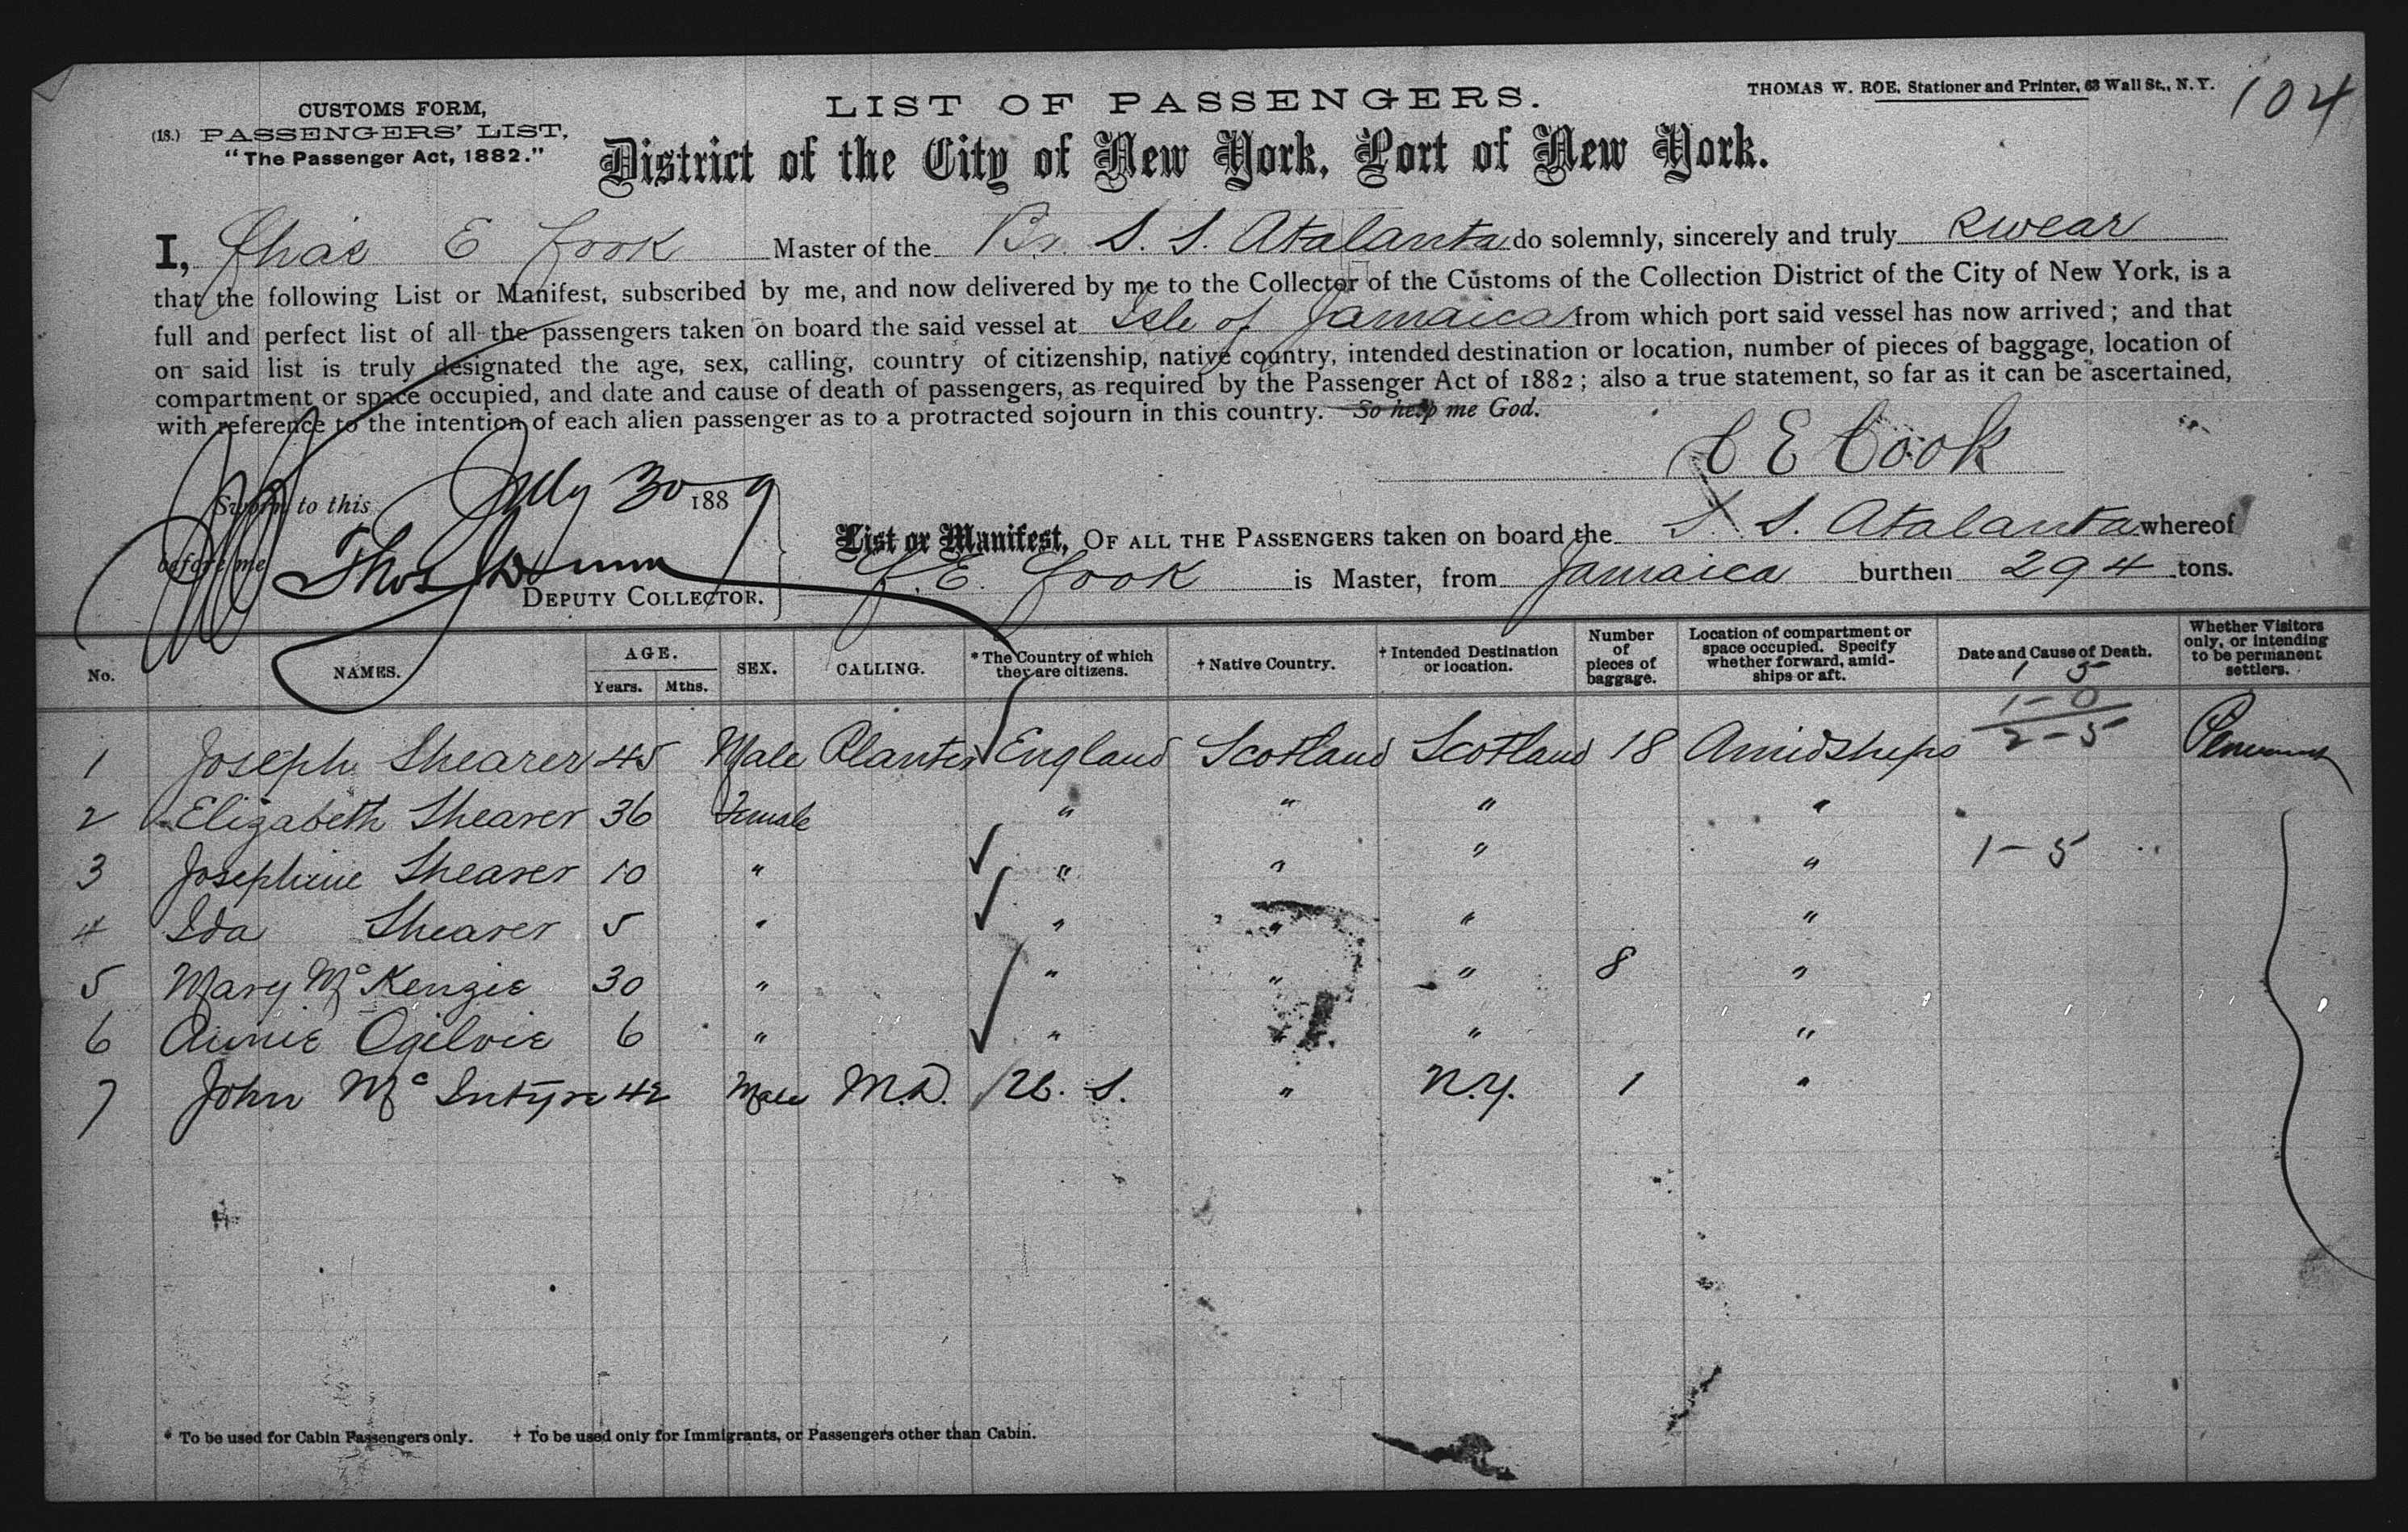 CUSTOMS FORM,
(18.) PASSENGERS' LIST,
"The Passenger Act, 1882."
LIST OF PASSENGERS.
THOMAS W. ROE, Stationer and Printer, 63 Wall St., N. Y.
104
District of the City of New York, Port of New York.
I, Chas E Cook Master of the Br. S. S. Atalanta do solemnly, sincerely and truly swear
that the following List or Manifest, subscribed by me, and now delivered by me to the Collector of the Customs of the Collection District of the City of New York, is a
full and perfect list of all the passengers taken on board the said vessel at Isle of Jamaica from which port said vessel has now arrived; and that
on said list is truly designated the age, sex, calling, country of citizenship, native country, intended destination or location, number of pieces of baggage, location of
compartment or space occupied, and date and cause of death of passengers, as required by the Passenger Act of 1882; also a true statement, so far as it can be ascertained,
with reference to the intention of each alien passenger as to a protracted sojourn in this country. So help me God.
C E Cook
Sworn to this July 30 1889
before me Thos
DEPUTY COLLECTOR.
List or Manifest, OF ALL THE PASSENGERS taken on board the S. S. Atalanta whereof
C. E. Cook is Master, from Jamaica burthen 294 tons.
No. NAMES. AGE. Years. Mths. SEX. CALLING. * The Country of which they are citizens. † Native Country. † Intended Destination or location. Number of pieces of baggage. Location of compartment or space occupied. Specify whether forward, amidships or aft. Date and Cause of Death. Whether Visitors only, or intending to be permanent settlers.
1 5
1 - 0
2 - 5
1 Joseph Shearer 45 Male Planter England Scotland Scotland 18 Amidships
2 Elizabeth Shearer 36 Female " " " "
3 Josephine Shearer 10 " " " " " 1 - 5
4 Ida Shearer 5 " " " " "
5 Mary McKenzie 30 " " " " 8 "
6 Annie Ogilvie 6 " " " " "
7 John McIntyre 42 Male M.D. U. S. " N.Y. 1 "
* To be used for Cabin Passengers only. † To be used only for Immigrants, or Passengers other than Cabin.